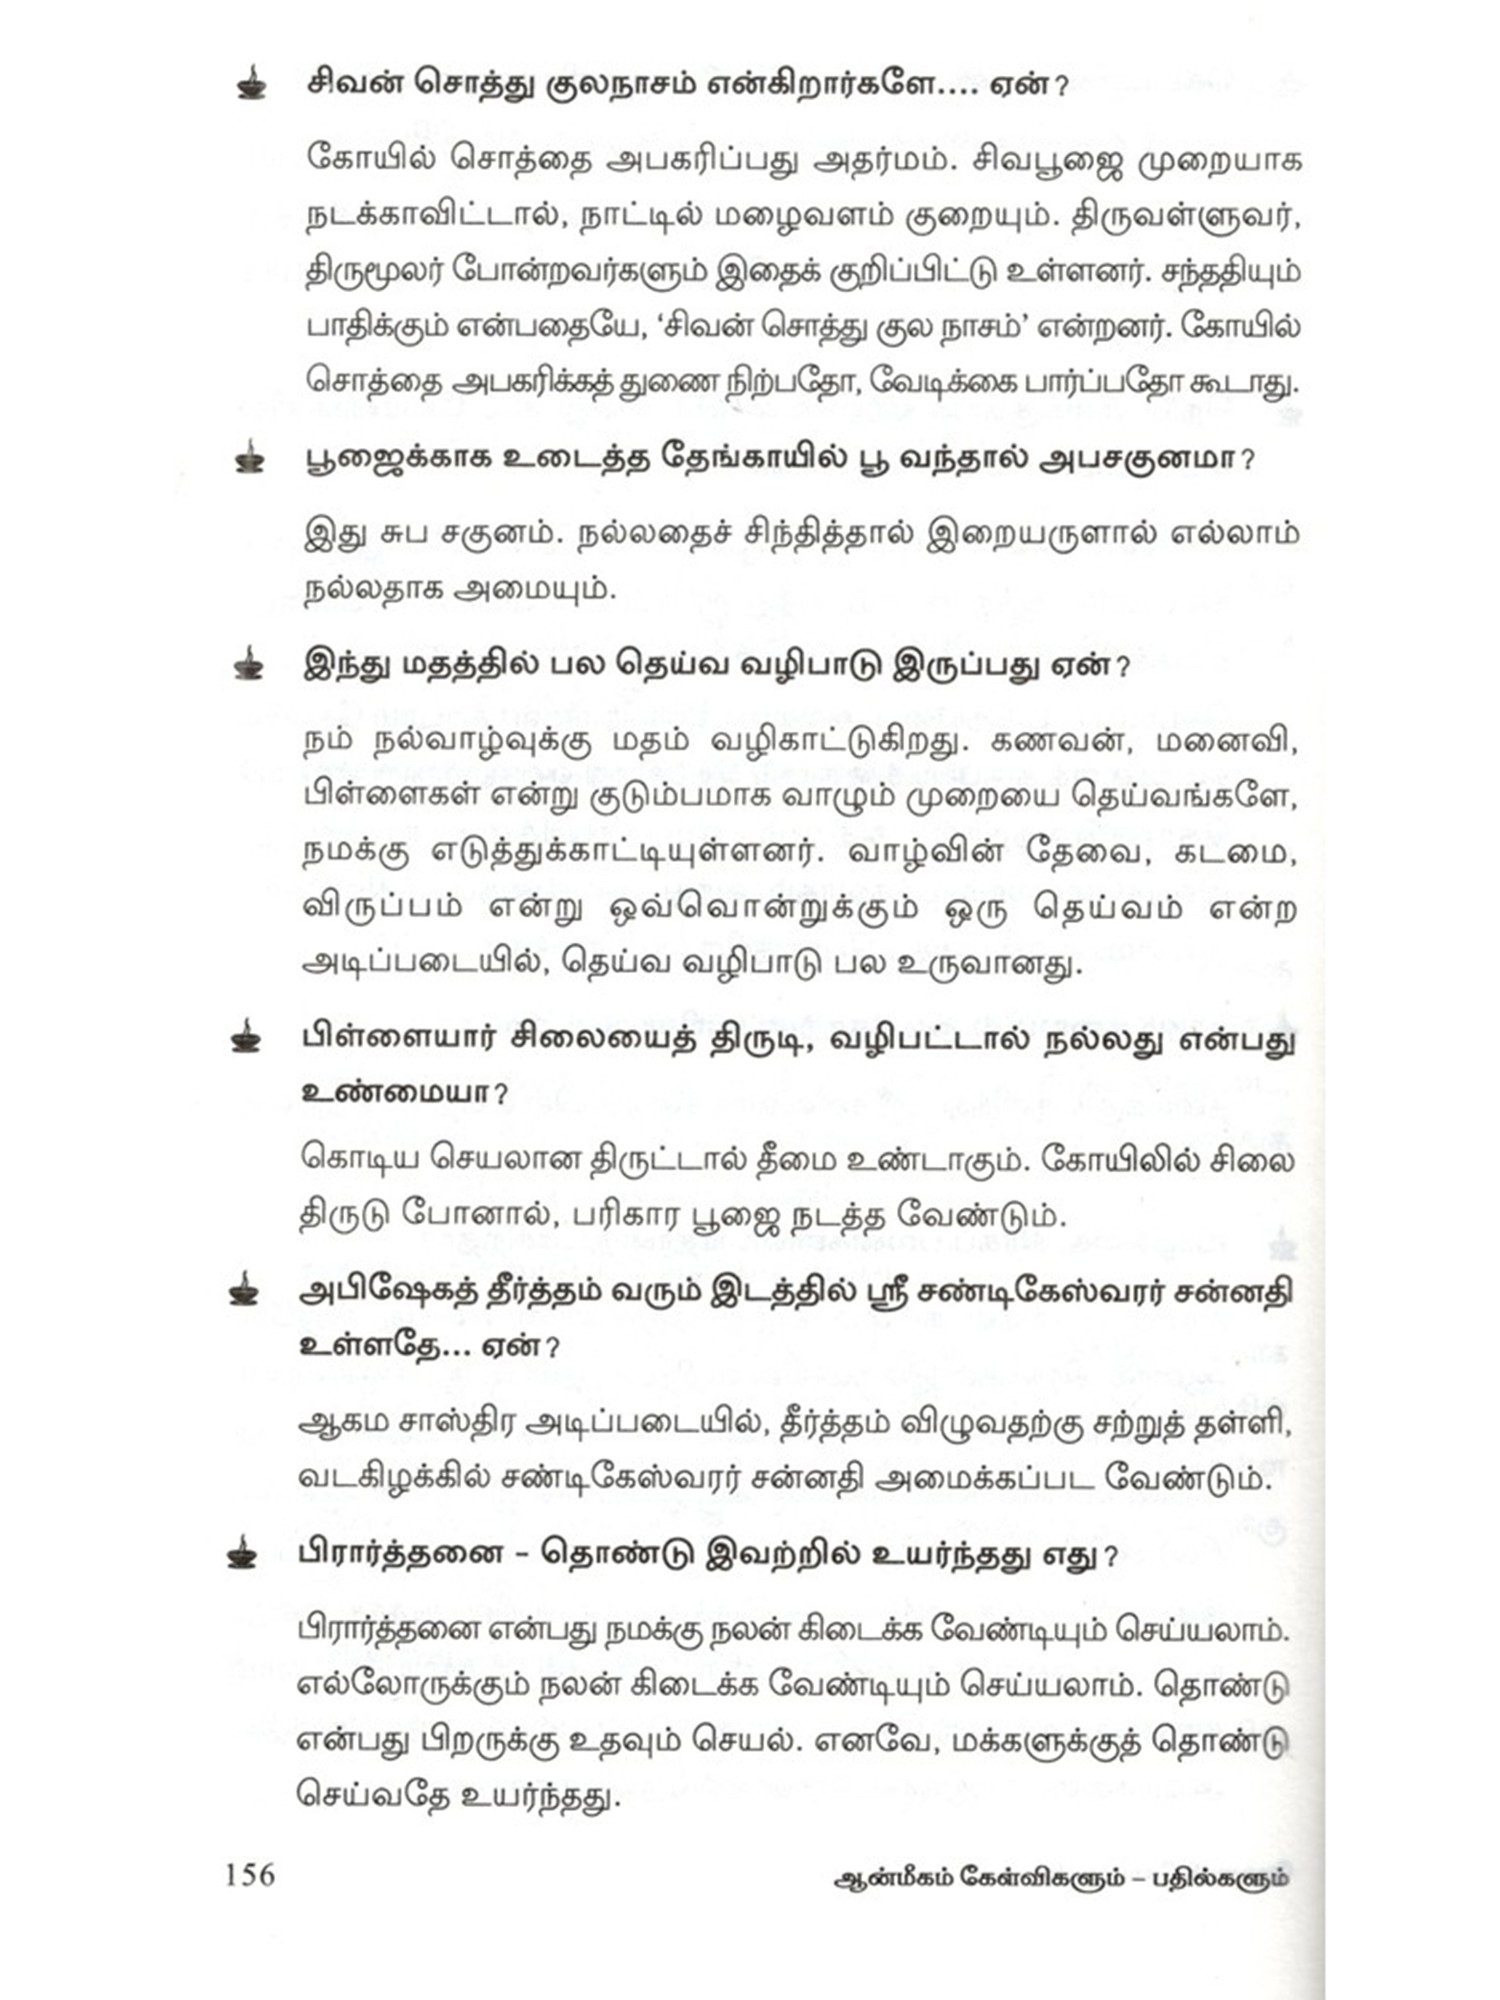 சிவன் சொத்து குலநாசம் என்கிறார்களே.... ஏன்?
கோயில் சொத்தை அபகரிப்பது அதர்மம். சிவபூஜை முறையாக
நடக்காவிட்டால், நாட்டில் மழைவளம் குறையும். திருவள்ளுவர்,
திருமூலர் போன்றவர்களும் இதைக் குறிப்பிட்டு உள்ளனர். சந்ததியும்
பாதிக்கும் என்பதையே, ‘சிவன் சொத்து குல நாசம்’ என்றனர். கோயில்
சொத்தை அபகரிக்கத் துணை நிற்பதோ, வேடிக்கை பார்ப்பதோ கூடாது.
பூஜைக்காக உடைத்த தேங்காயில் பூ வந்தால் அபசகுனமா?
இது சுப சகுனம். நல்லதைச் சிந்தித்தால் இறையருளால் எல்லாம்
நல்லதாக அமையும்.
இந்து மதத்தில் பல தெய்வ வழிபாடு இருப்பது ஏன்?
நம் நல்வாழ்வுக்கு மதம் வழிகாட்டுகிறது. கணவன், மனைவி,
பிள்ளைகள் என்று குடும்பமாக வாழும் முறையை தெய்வங்களே,
நமக்கு எடுத்துக்காட்டியுள்ளனர். வாழ்வின் தேவை, கடமை,
விருப்பம் என்று ஒவ்வொன்றுக்கும் ஒரு தெய்வம் என்ற
அடிப்படையில், தெய்வ வழிபாடு பல உருவானது.
பிள்ளையார் சிலையைத் திருடி, வழிபட்டால் நல்லது என்பது
உண்மையா?
கொடிய செயலான திருட்டால் தீமை உண்டாகும். கோயிலில் சிலை
திருடு போனால், பரிகார பூஜை நடத்த வேண்டும்.
அபிஷேகத் தீர்த்தம் வரும் இடத்தில் ஸ்ரீ சண்டிகேஸ்வரர் சன்னதி
உள்ளதே... ஏன்?
ஆகம சாஸ்திர அடிப்படையில், தீர்த்தம் விழுவதற்கு சற்றுத் தள்ளி,
வடகிழக்கில் சண்டிகேஸ்வரர் சன்னதி அமைக்கப்பட வேண்டும்.
பிரார்த்தனை – தொண்டு இவற்றில் உயர்ந்தது எது?
பிரார்த்தனை என்பது நமக்கு நலன் கிடைக்க வேண்டியும் செய்யலாம்.
எல்லோருக்கும் நலன் கிடைக்க வேண்டியும் செய்யலாம். தொண்டு
என்பது பிறருக்கு உதவும் செயல். எனவே, மக்களுக்குத் தொண்டு
செய்வதே உயர்ந்தது.
156 ஆன்மீகம் கேள்விகளும் – பதில்களும்